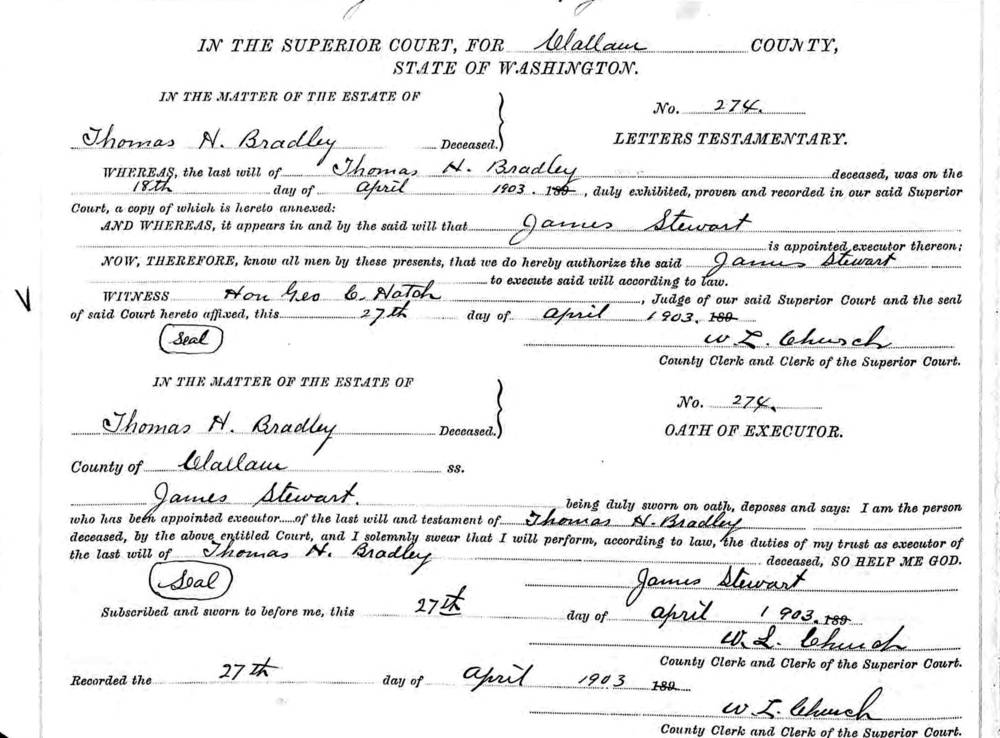 IN THE SUPERIOR COURT, FOR Clallam COUNTY,
STATE OF WASHINGTON.
IN THE MATTER OF THE ESTATE OF
No. 274.
Thomas H. Bradley Deceased.
LETTERS TESTAMENTARY.
WHEREAS, the last will of Thomas H. Bradley deceased, was on the
18th day of April 1903. 189 , duly exhibited, proven and recorded in our said Superior
Court, a copy of which is hereto annexed:
AND WHEREAS, it appears in and by the said will that James Stewart
is appointed executor thereon;
NOW, THEREFORE, know all men by these presents, that we do hereby authorize the said James Stewart
to execute said will according to law.
WITNESS Hon Geo C. Hatch , Judge of our said Superior Court and the seal
of said Court hereto affixed, this 27th day of April 1903. 189
(Seal) W. L. Church
County Clerk and Clerk of the Superior Court.
IN THE MATTER OF THE ESTATE OF
No. 274.
Thomas H. Bradley Deceased.
OATH OF EXECUTOR.
County of Clallam ss.
James Stewart. being duly sworn on oath, deposes and says: I am the person
who has been appointed executor of the last will and testament of Thomas H. Bradley
deceased, by the above entitled Court, and I solemnly swear that I will perform, according to law, the duties of my trust as executor of
the last will of Thomas H. Bradley deceased, SO HELP ME GOD.
(Seal) James Stewart
Subscribed and sworn to before me, this 27th day of April 1903. 189
W. L. Church
County Clerk and Clerk of the Superior Court.
Recorded the 27th day of April 1903 189
W. L. Church
County Clerk and Clerk of the Superior Court.